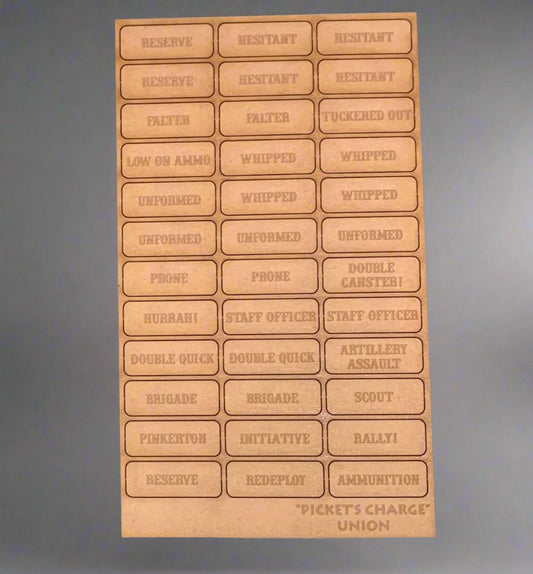 RESERVE HESITANT HESITANT
RESERVE HESITANT HESITANT
FALTER FALTER TUCKERED OUT
LOW ON AMMO WHIPPED WHIPPED
UNFORMED WHIPPED WHIPPED
UNFORMED UNFORMED UNFORMED
PRONE PRONE DOUBLE
CANSTER!
HURRAH! STAFF OFFICER STAFF OFFICER
DOUBLE QUICK DOUBLE QUICK ARTILLERY
ASSAULT
BRIGADE BRIGADE SCOUT
PINKERTON INITIATIVE RALLY!
RESERVE REDEPLOY AMMUNITION
"PICKET'S CHARGE"
UNION